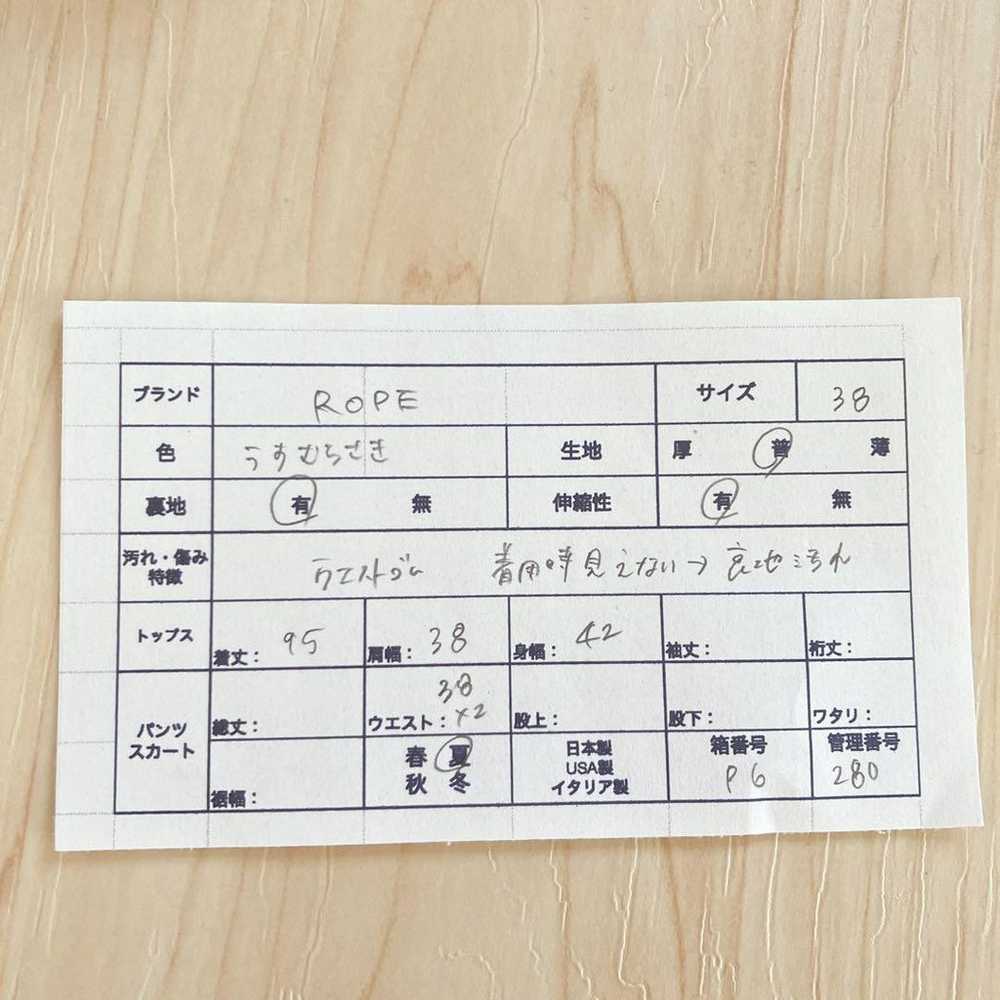 ブランド ROPE サイズ 38
色 うすむらさき 生地 厚 普 薄
裏地 有 無 伸縮性 有 無
汚れ・傷み
特徴 ウエストゴム 着用時見えない→裏地汚れ
トップス 着丈: 95 肩幅: 38 身幅: 42 袖丈: 裄丈:
パンツ
スカート 総丈: ウエスト: 38×2 股上: 股下: ワタリ:
裾幅: 春 夏
秋 冬
日本製
USA製
イタリア製
箱番号 P6
管理番号 280